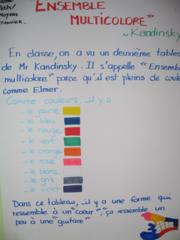 "ENSEMBLE
MULTICOLORE"
~ Kandinsky
En classe, on a vu un deuxième tableau
de Mr Kandinsky. Il s'appelle "Ensemble
multicolore" parce qu'il est pleins de coul
comme Elmer.
Comme couleurs, il y a
- le jaune
- le bleu
- le rouge
- le vert
- le orange
- le rose
- le blanc
- le gris
- le violet
Dans ce tableau, il y a une forme qui
ressemble à un "coeur", ça ressemble un
peu à une "guitare"